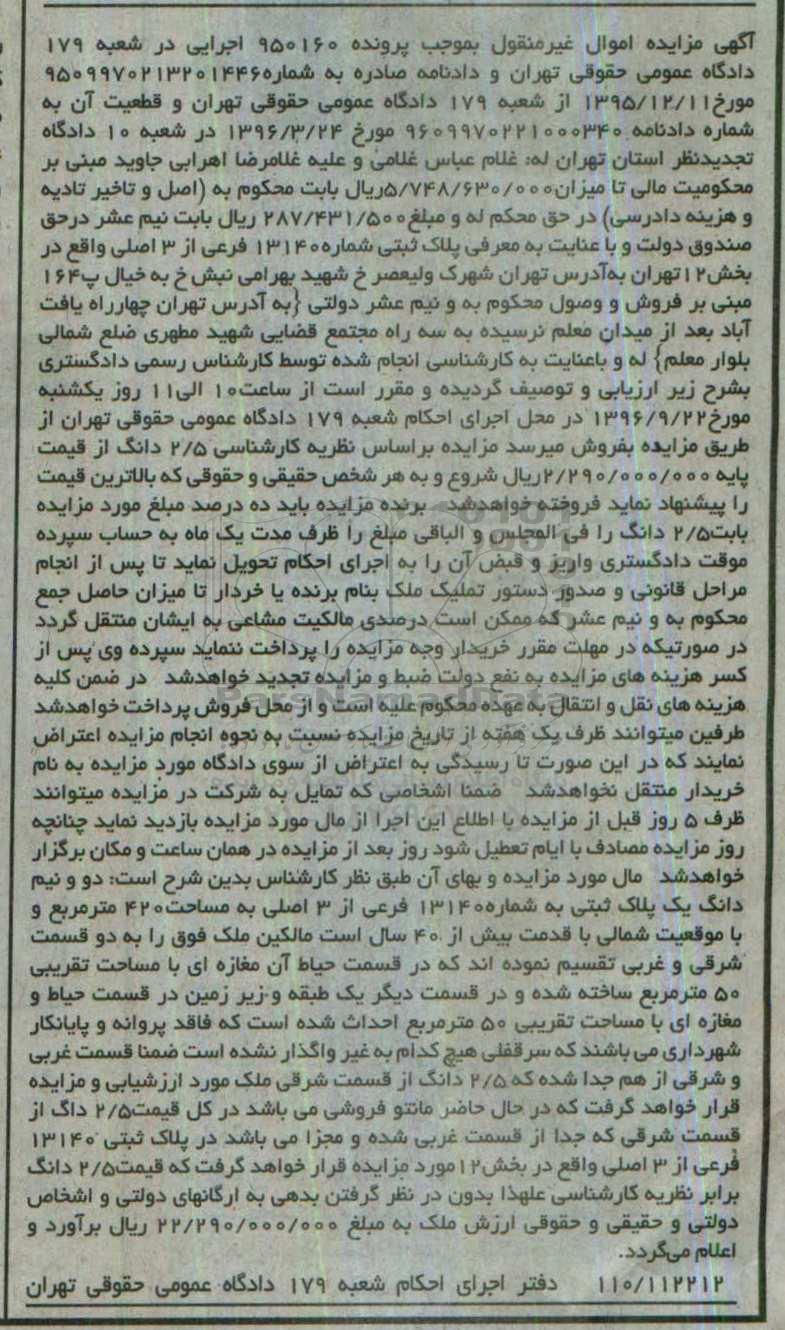 آگهی مزایده اموال غیرمنقول بموجب پرونده ۹۵۰۱۶۰ اجرایی در شعبه ۱۷۹
دادگاه عمومی حقوقی تهران و دادنامه صادره به شماره۹۵۰۹۹۷۰۲۱۳۲۰۱۴۴۶
مورخ۱۳۹۵/۱۲/۱۱ از شعبه ۱۷۹ دادگاه عمومی حقوقی تهران و قطعیت آن به
شماره دادنامه ۹۶۰۹۹۷۰۲۲۱۰۰۰۳۴۰ مورخ ۱۳۹۶/۳/۲۴ در شعبه ۱۰ دادگاه
تجدیدنظر استان تهران له: غلام عباس غلامی و علیه غلامرضا اهرابی جاوید مبنی بر
محکومیت مالی تا میزان۵/۷۴۸/۶۳۰/۰۰۰ریال بابت محکوم به (اصل و تاخیر تادیه
و هزینه دادرسی) در حق محکم له و مبلغ۲۸۷/۴۳۱/۵۰۰ ریال بابت نیم عشر درحق
صندوق دولت و با عنایت به معرفی پلاک ثبتی شماره۱۳۱۴۰ فرعی از ۳ اصلی واقع در
بخش۱۲تهران به‌آدرس تهران شهرک ولیعصر خ شهید بهرامی نبش خ به خیال پ۱۶۴
مبنی بر فروش و وصول محکوم به و نیم عشر دولتی {به آدرس تهران چهارراه یافت
آباد بعد از میدان معلم نرسیده به سه راه مجتمع قضایی شهید مطهری ضلع شمالی
بلوار معلم} له و باعنایت به کارشناسی انجام شده توسط کارشناس رسمی دادگستری
بشرح زیر ارزیابی و توصیف گردیده و مقرر است از ساعت۱۰ الی۱۱ روز یکشنبه
مورخ۱۳۹۶/۹/۲۲ در محل اجرای احکام شعبه ۱۷۹ دادگاه عمومی حقوقی تهران از
طریق مزایده بفروش میرسد مزایده براساس نظریه کارشناسی ۲/۵ دانگ از قیمت
پایه ۲/۲۹۰/۰۰۰/۰۰۰ریال شروع و به هر شخص حقیقی و حقوقی که بالاترین قیمت
را پیشنهاد نماید فروخته خواهدشد برنده مزایده باید ده درصد مبلغ مورد مزایده
بابت۲/۵ دانگ را فی المجلس و الباقی مبلغ را ظرف مدت یک ماه به حساب سپرده
موقت دادگستری واریز و قبض آن را به اجرای احکام تحویل نماید تا پس از انجام
مراحل قانونی و صدور دستور تملیک ملک بنام برنده یا خردار تا میزان حاصل جمع
محکوم به و نیم عشر که ممکن است درصدی مالکیت مشاعی به ایشان منتقل گردد
در صورتیکه در مهلت مقرر خریدار وجه مزایده را پرداخت ننماید سپرده وی پس از
کسر هزینه های مزایده به نفع دولت ضبط و مزایده تجدید خواهدشد در ضمن کلیه
هزینه های نقل و انتقال به عهده محکوم علیه است و از محل فروش پرداخت خواهدشد
طرفین میتوانند ظرف یک هفته از تاریخ مزایده نسبت به نحوه انجام مزایده اعتراض
نمایند که در این صورت تا رسیدگی به اعتراض از سوی دادگاه مورد مزایده به نام
خریدار منتقل نخواهدشد ضمنا اشخاصی که تمایل به شرکت در مزایده میتوانند
ظرف ۵ روز قبل از مزایده با اطلاع این اجرا از مال مورد مزایده بازدید نماید چنانچه
روز مزایده مصادف با ایام تعطیل شود روز بعد از مزایده در همان ساعت و مکان برگزار
خواهدشد مال مورد مزایده و بهای آن طبق نظر کارشناس بدین شرح است: دو و نیم
دانگ یک پلاک ثبتی به شماره۱۳۱۴۰ فرعی از ۳ اصلی به مساحت۴۲۰ مترمربع و
با موقعیت شمالی با قدمت بیش از ۴۰ سال است مالکین ملک فوق را به دو قسمت
شرقی و غربی تقسیم نموده اند که در قسمت حیاط آن مغازه ای با مساحت تقریبی
۵۰ مترمربع ساخته شده و در قسمت دیگر یک طبقه و زیر زمین در قسمت حیاط و
مغازه ای با مساحت تقریبی ۵۰ مترمربع احداث شده است که فاقد پروانه و پایانکار
شهرداری می باشند که سرقفلی هیچ کدام به غیر واگذار نشده است ضمنا قسمت غربی
و شرقی از هم جدا شده که ۲/۵ دانگ از قسمت شرقی ملک مورد ارزشیابی و مزایده
قرار خواهد گرفت که در حال حاضر مانتو فروشی می باشد در کل قیمت۲/۵ داگ از
قسمت شرقی که جدا از قسمت غربی شده و مجزا می باشد در پلاک ثبتی ۱۳۱۴۰
فرعی از ۳ اصلی واقع در بخش۱۲مورد مزایده قرار خواهد گرفت که قیمت۲/۵ دانگ
برابر نظریه کارشناسی علهذا بدون در نظر گرفتن بدهی به ارگانهای دولتی و اشخاص
دولتی و حقیقی و حقوقی ارزش ملک به مبلغ ۲۲/۲۹۰/۰۰۰/۰۰۰ ریال برآورد و
اعلام می‌گردد.
۱۱۰/۱۱۲۲۱۲ دفتر اجرای احکام شعبه ۱۷۹ دادگاه عمومی حقوقی تهران
ParsNamadData